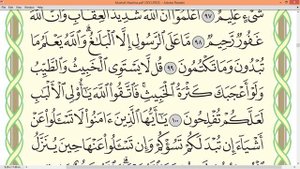 Mushaf Madina.pdf (SECURED) - Adobe Reader
شَىْءٍ عَلِيمٌ ٩٧ ٱعْلَمُوٓا۟ أَنَّ ٱللَّهَ شَدِيدُ ٱلْعِقَابِ وَأَنَّ ٱللَّهَ
غَفُورٌ رَّحِيمٌ ٩٨ مَّا عَلَى ٱلرَّسُولِ إِلَّا ٱلْبَلَٰغُ وَٱللَّهُ يَعْلَمُ مَا
تُبْدُونَ وَمَا تَكْتُمُونَ ٩٩ قُل لَّا يَسْتَوِى ٱلْخَبِيثُ وَٱلطَّيِّبُ
وَلَوْ أَعْجَبَكَ كَثْرَةُ ٱلْخَبِيثِ فَٱتَّقُوا۟ ٱللَّهَ يَٰٓأُو۟لِى ٱلْأَلْبَٰبِ
لَعَلَّكُمْ تُفْلِحُونَ ١٠٠ يَٰٓأَيُّهَا ٱلَّذِينَ ءَامَنُوا۟ لَا تَسْـَٔلُوا۟ عَنْ
أَشْيَآءَ إِن تُبْدَ لَكُمْ تَسُؤْكُمْ وَإِن تَسْـَٔلُوا۟ عَنْهَا حِينَ يُنَزَّلُ